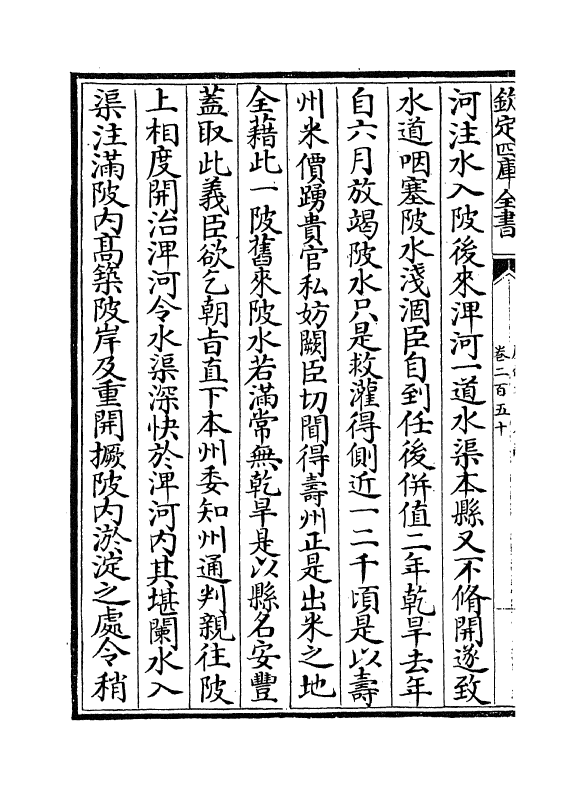 欽定四庫全書
卷二百五十
河注水入陂後來淠河一道水渠本縣又不脩開遂致
水道咽塞陂水淺涸臣自到任後併值二年乾旱去年
自六月放竭陂水只是救灌得側近一二千頃是以壽
州米價踴貴官私妨闕臣切聞得壽州正是出米之地
全藉此一陂舊來陂水若滿常無乾旱是以縣名安豐
蓋取此義臣欲乞朝旨直下本州委知州通判親往陂
上相度開治淠河令水渠深快於淠河内其堪闌水入
渠注滿陂内髙築陂岸及重開撅陂内淤淀之處令稍